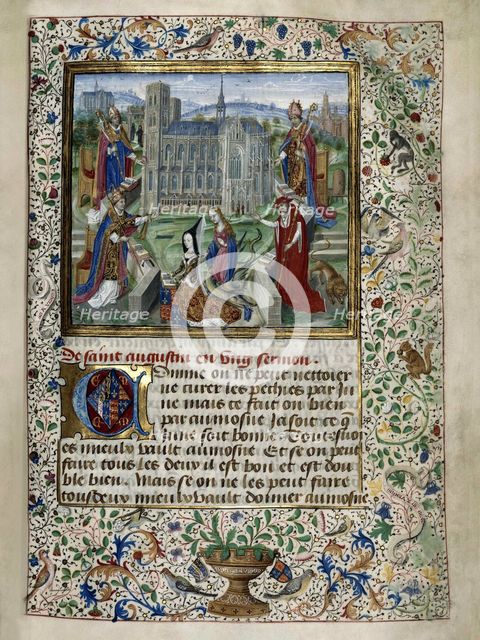 De saint augustin en ung sermon.
Comme on ne peut nettoier
ne curer les pechies par ju
ne mais ce fait on bien
par aumosne Ja soit ce q
June soit bonne
es mieulx vault aumosne Et se on peut
faire tous les deux il est bon et est dou
ble bien. Mais se on ne les peut faire
tous deux mieulx vault donner aumosne